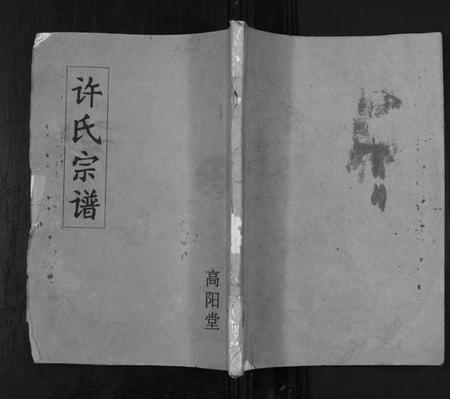 许氏宗谱
高阳堂